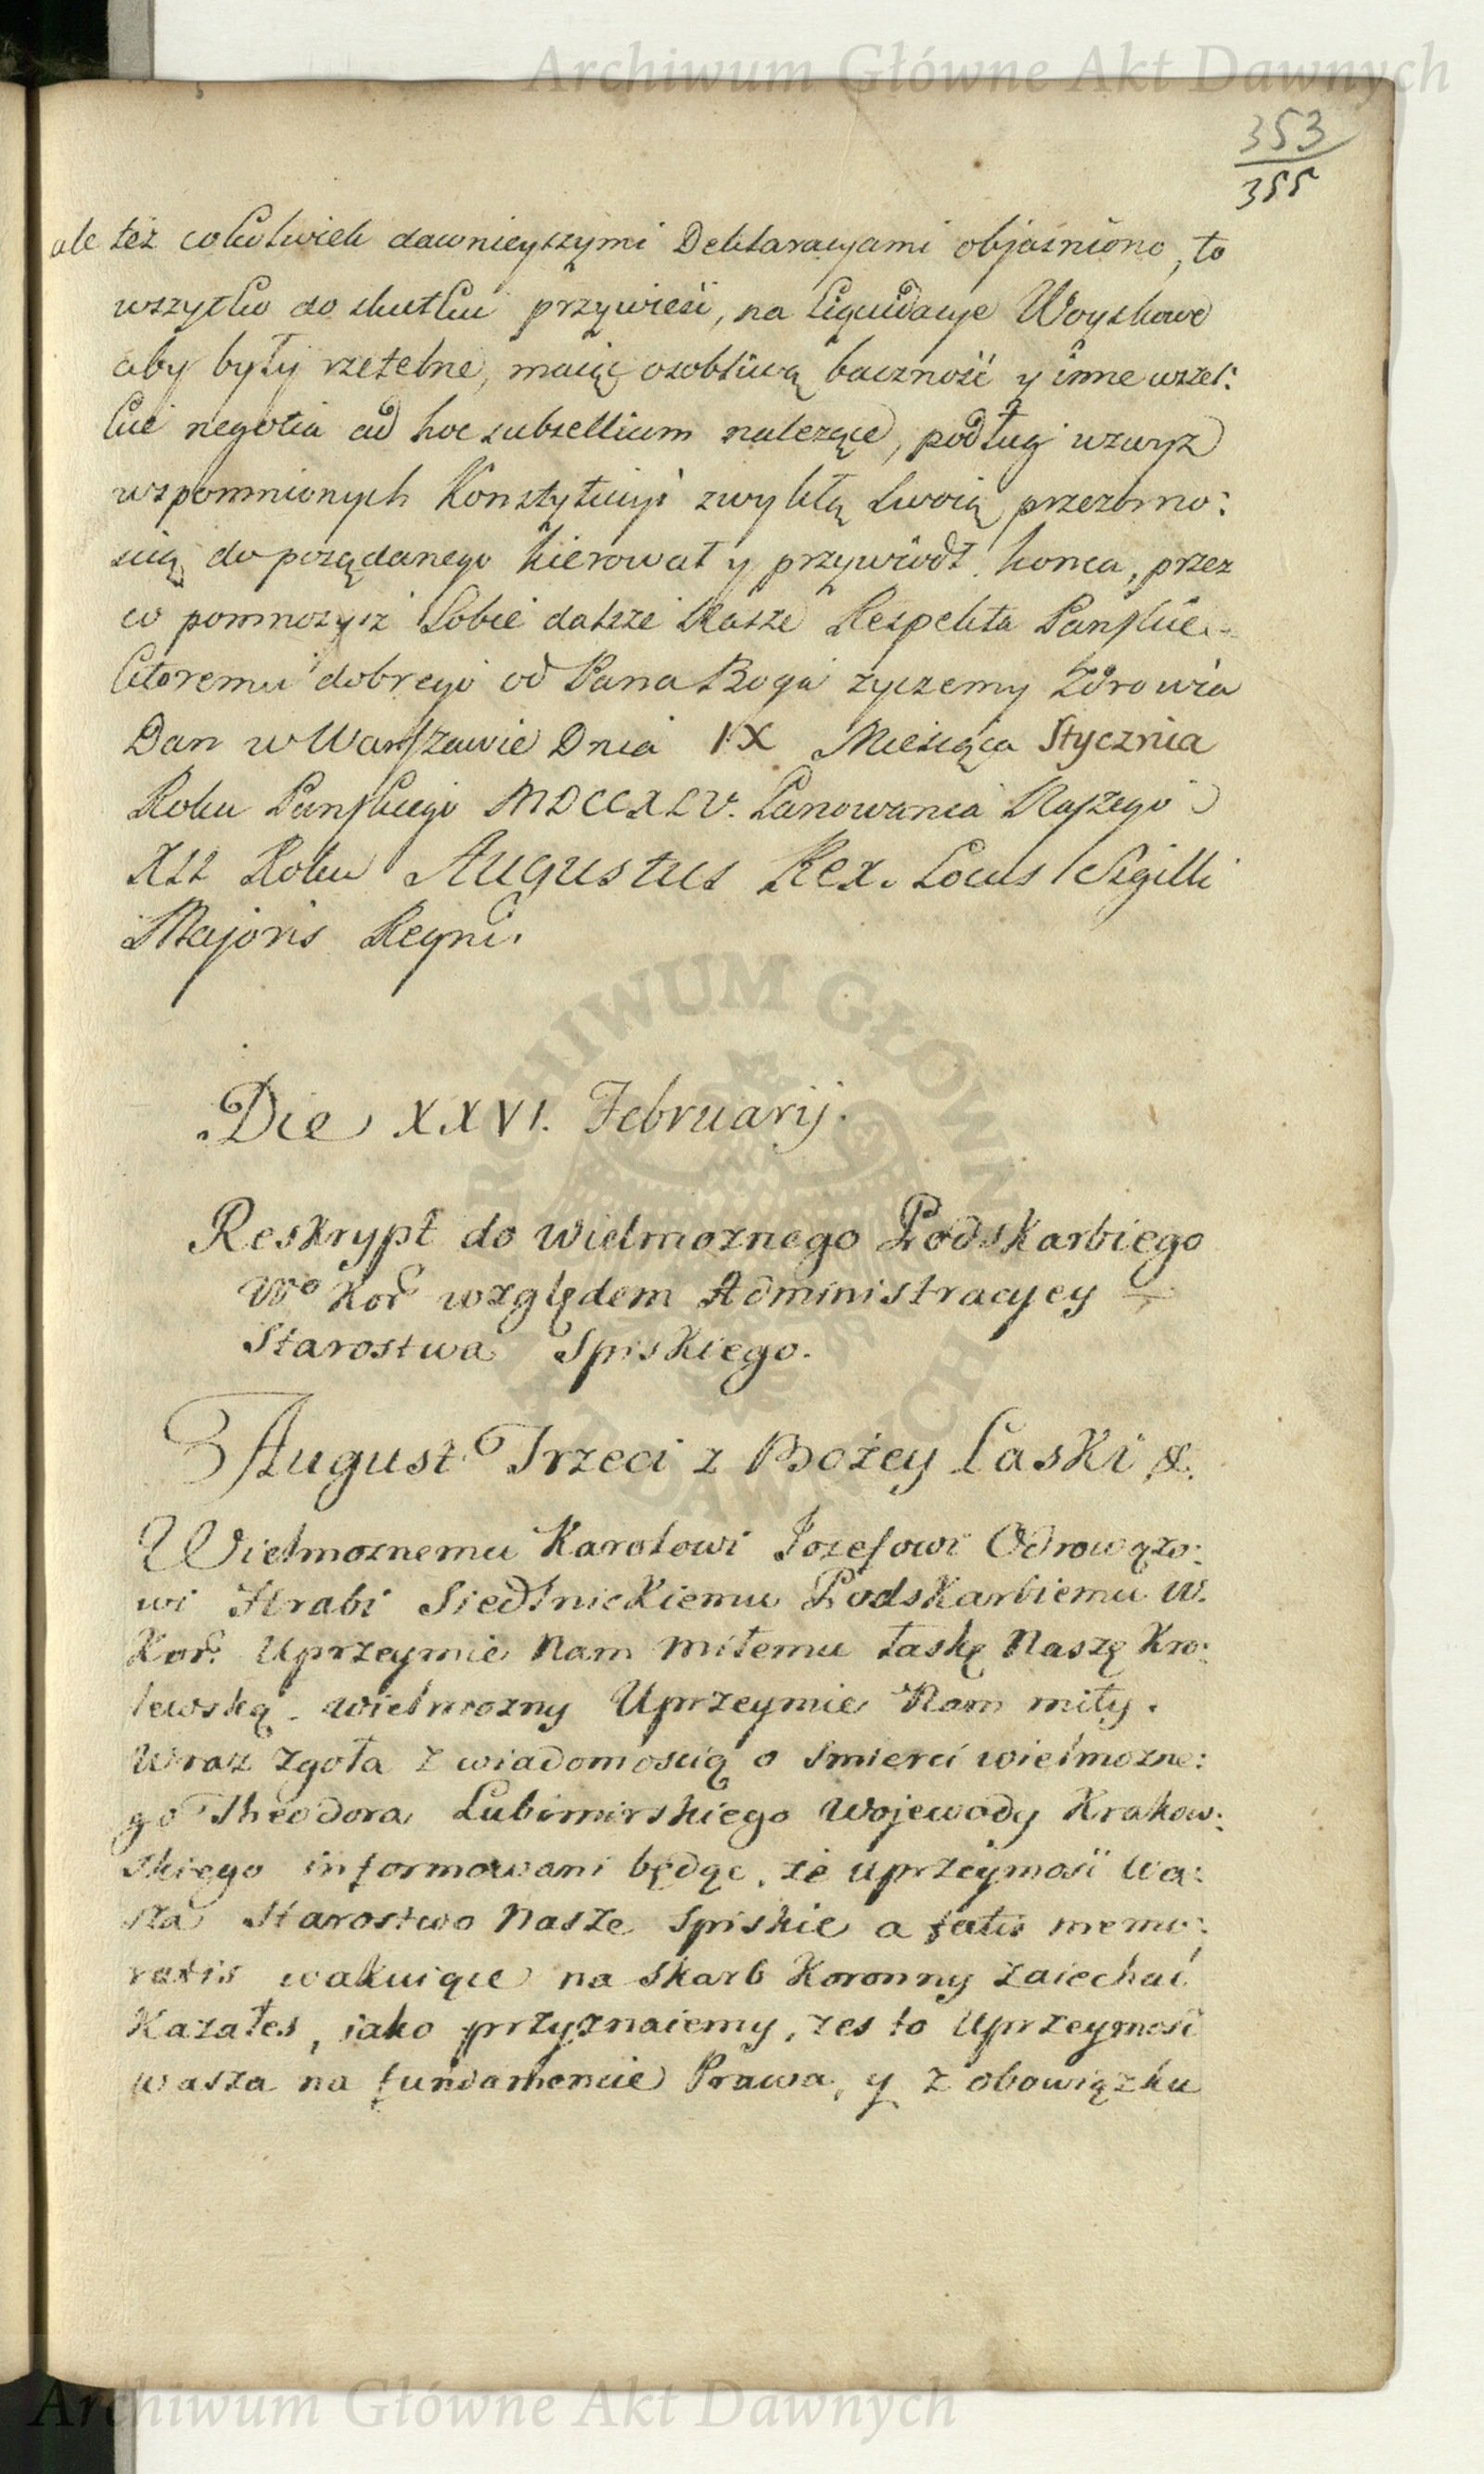 Archiwum Główne Akt Dawnych
353
355
ale też cokolwiek dawnieyszymi Deklaracyami objaśniono, to
wszytko do skutku przywieść, na Liquidacye Woyskowe
aby były rzetelne, maiąc osobliwą baczność y inne wszel:
kie negotia ad hoc subsellium należące, podług wzwyż
wspomnionych Konstytucyi zwykłą swoią przezorno:
scią do pożądanego kierował y przywiodł konca, przez
co pomnożysz Sobie dalsze Nasze Respekta Pańskie
ktoremu dobrego od Pana Boga życzemy Zdrowia
Dan w Warszawie Dnia IX Miesiąca Stycznia
Roku Pańskiego MDCCXLV. Panowania Naszego
XII Roku Augustus Rex. Locus Sigilli
Majoris Regni.
Die XXVI. Februarij.
Reskrypt do Wielmoznego Podskarbiego
Wo Kor względem Administracyey
Starostwa Spiskiego.
August Trzeci z Bożey Łaski &.
Wielmoznemu Karolowi Jozefowi Odrowązo:
wi Hrabi Siedlnickiemu Podskarbiemu W.
Kor. Uprzeymie Nam miłemu łaskę Naszę Kro:
lewską. Wielmozny Uprzeymie Nam miły.
Wraz zgoła z wiadomoscią o smierci wielmozne:
go Theodora Lubomirskiego Wojewody Krakow:
skiego informowani będąc, że uprzeymość Wa:
sza Starostwo Nasze Spiskie a fatis memo:
ratis wakuiące na Skarb Koronny zaiechać
Kazałes, jako przyznaiemy, zes to Uprzeymość
wasza na fundamencie Prawa, y z obowiązku
ARCHIWUM GŁÓWNE AKT DAWNYCH
Archiwum Główne Akt Dawnych